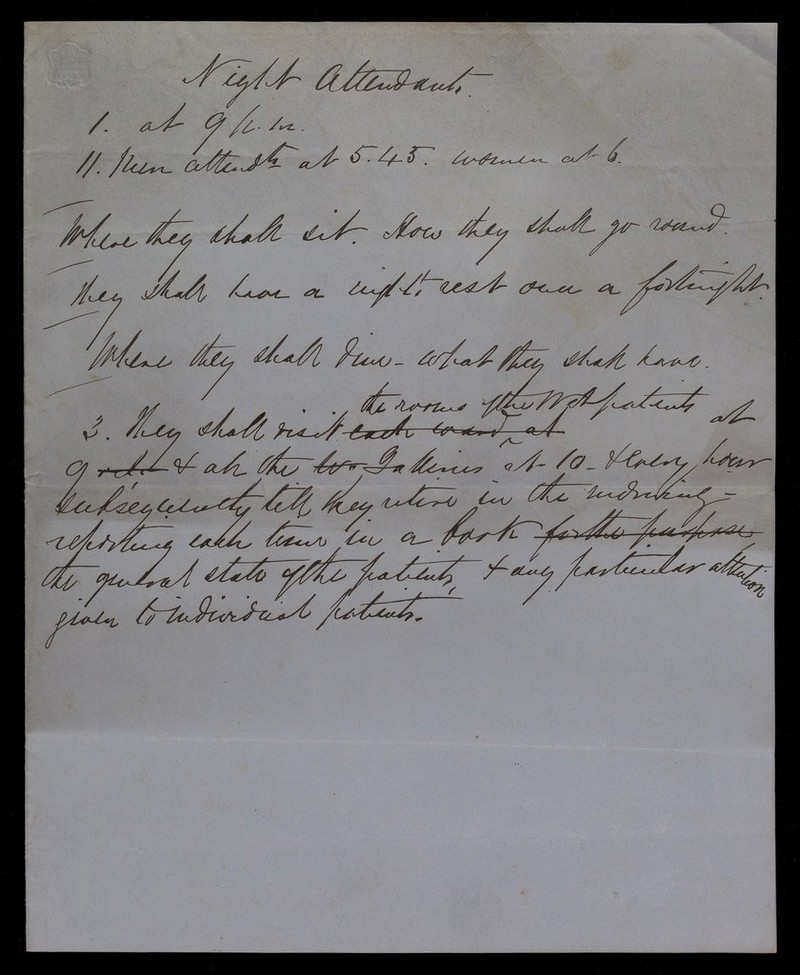 Night Attendants.
1. at 9 p.m.
11. Men attendts at 5.45. women at 6.
Where they shall sit. How they shall go round.
They shall have a night's rest once a fortnight.
Where they shall dine - what they shall have.
the rooms of the Wet patients
3. They shall visit each ward at at
9 & all the Galleries at 10 - & every hour
subsequently till they retire in the morning -
reporting each time in a book for the purpose
the general state of the patients, & any particular attention
given to individual patients.